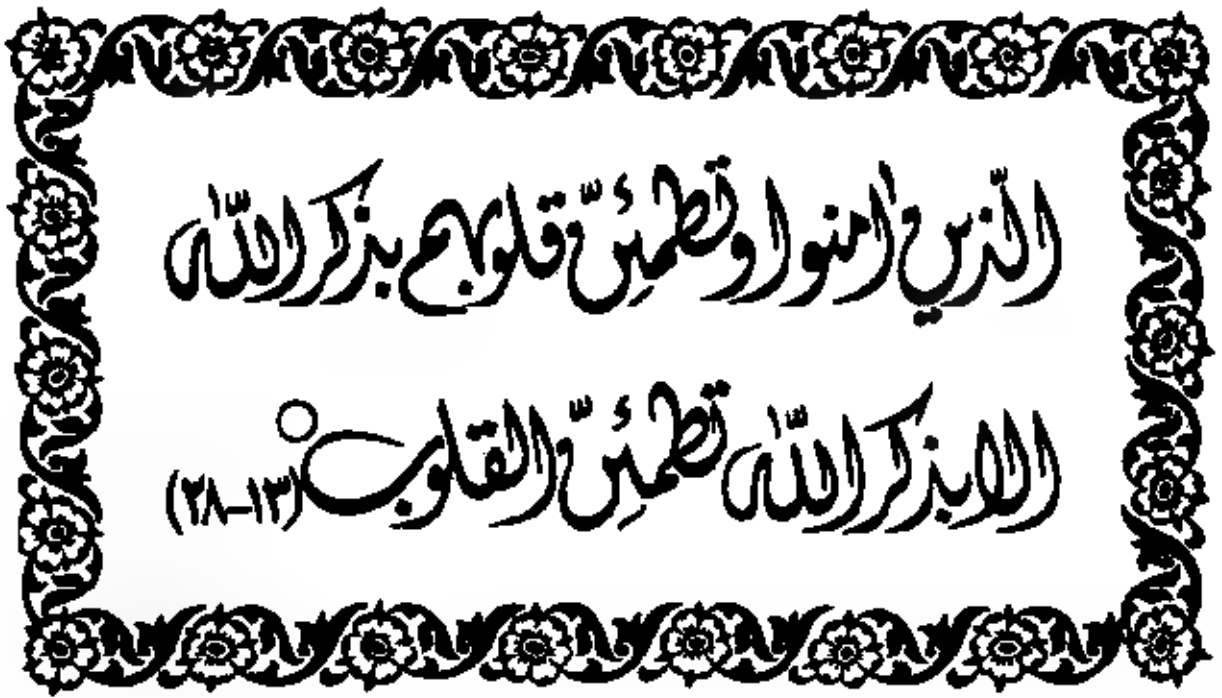 الّذين اٰمنوا وتطمئِنّ قلوبهم بذكر اللّٰه
الا بذكر اللّٰه تطمئِنّ القلوب ○ (١٣–٢٨)